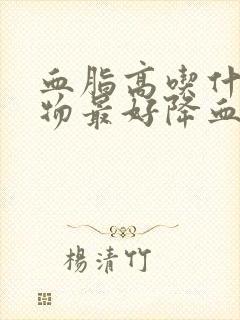 血脂高喫什
物最好降血
楊清竹